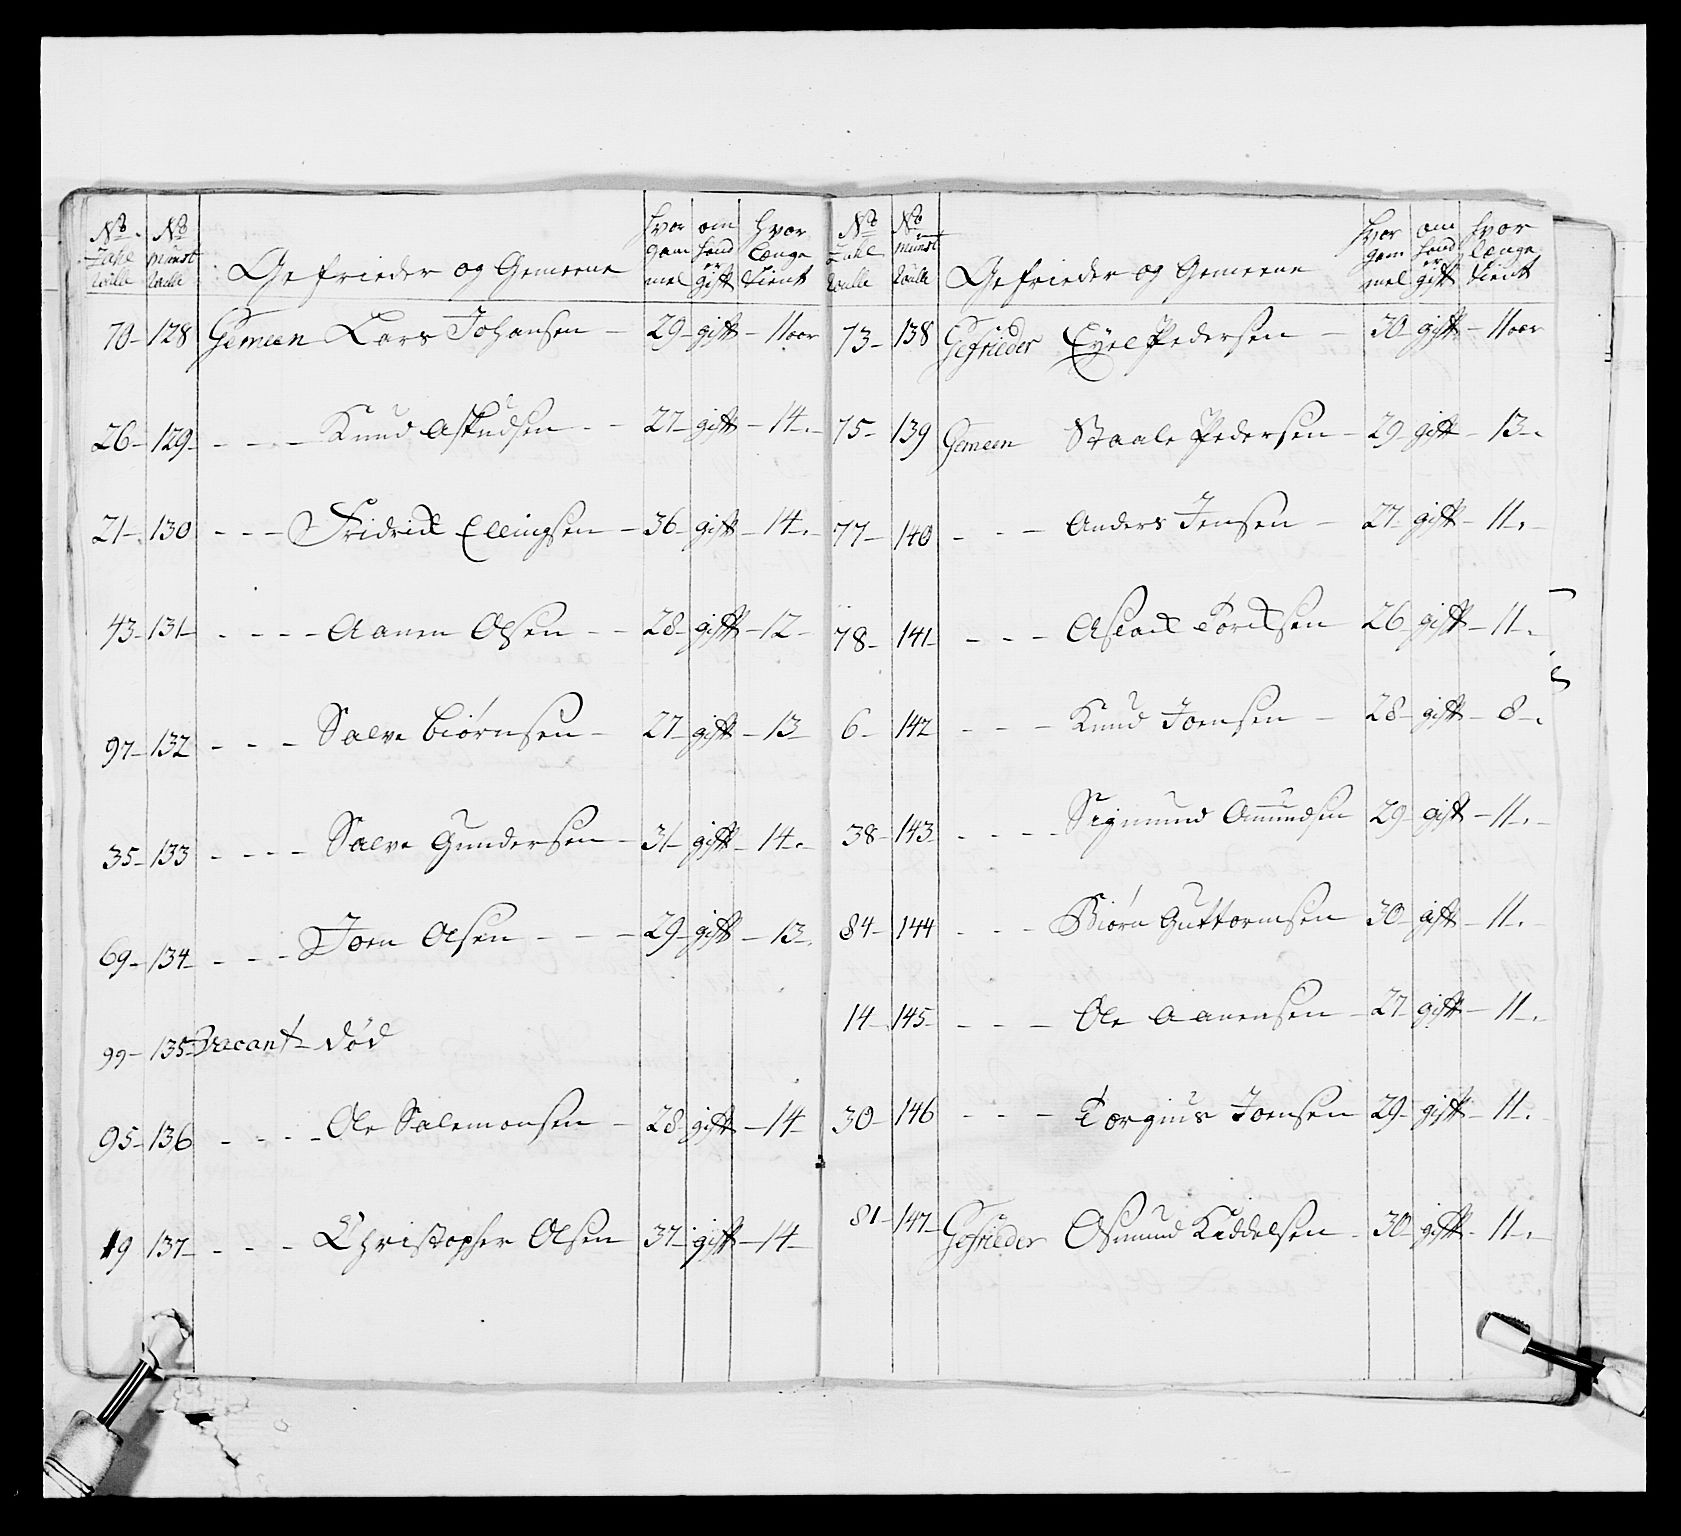 No Tahl Rulle | No Munst Rulle | Gefrieder og Gemeene | Hvor gam mel | om hand er gift | Hvor Længe Tient
70 - 128 Gemeen Lars Johansen - 29 - gift - 11 aar
26 - 129 - - - Knud Asludsen - - 27 - gift - 14. -
21 - 130 - - - Fridrich Ellingsen - 36 - gift - 14. -
43 - 131 - - - - Aanen Olsen - - 28 - gift - 12 -
97 - 132 - - - Salve Biørnsen - 27 - gift - 13 -
35 - 133 - - - - Salve Gundersen - 31 - gift - 14. -
69 - 134 - - - - Joen Olsen - - - 29 - gift - 13 -
99 - 135 Vacant - död
95 - 136 - - - - Ole Salemonsen - 28 - gift - 14 -
19 137 - - - - Christopher Olsen 37 - gift - 14 -
No Tahl Rulle | No Munst Rulle | Gefrieder og Gemeene | Hvor gam mel | om hand er gift | Hvor længe tient
73 - 138 Gefrieder Eyel Pedersen - 30 - gift - 11 aar
75 - 139 Gemeen Staale Pedersen - 29 - gift - 13 -.
77 - 140 - - - Anders Jensen - 27 - gift - 11. -
78 - 141 - - - - Aslach Torchsen 26 - gift - 11. -
6 - 142 - - - Knud Joensen - 28 - gift - 8 -.
38 - 143 - - - - Sigmund Amundsen 29 - gift - 11. -
84 - 144 - - - Biörn Guttormsen 30 - gift - 11. -
14 - 145 - - - - Ole Aanensen - 27 - gift - 11 -.
30 - 146 - - - Torgius Joensen 29 - gift - 11. -
81 - 147 - Gefrieder Osmund Keddelsen - 30 - gift - 11. -